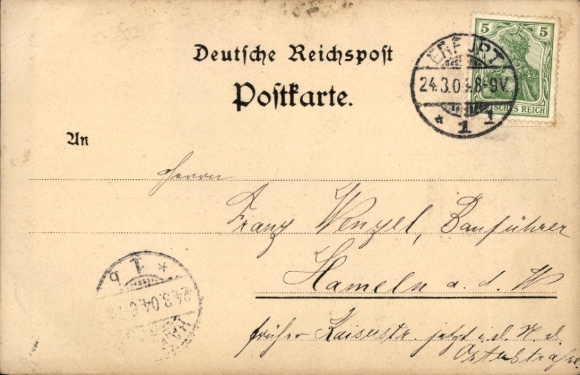 Deutsche Reichspost
Postkarte.
5 5
ERFURT
24.3.04.8-9V.
* 1 1
An
Herrn
Franz Wenzel, Bauführer
Hameln a. d. W
früher Kaiserstr. jetzt i. d. N. d.
Osterstraße
* 1 b
24.3.04.6